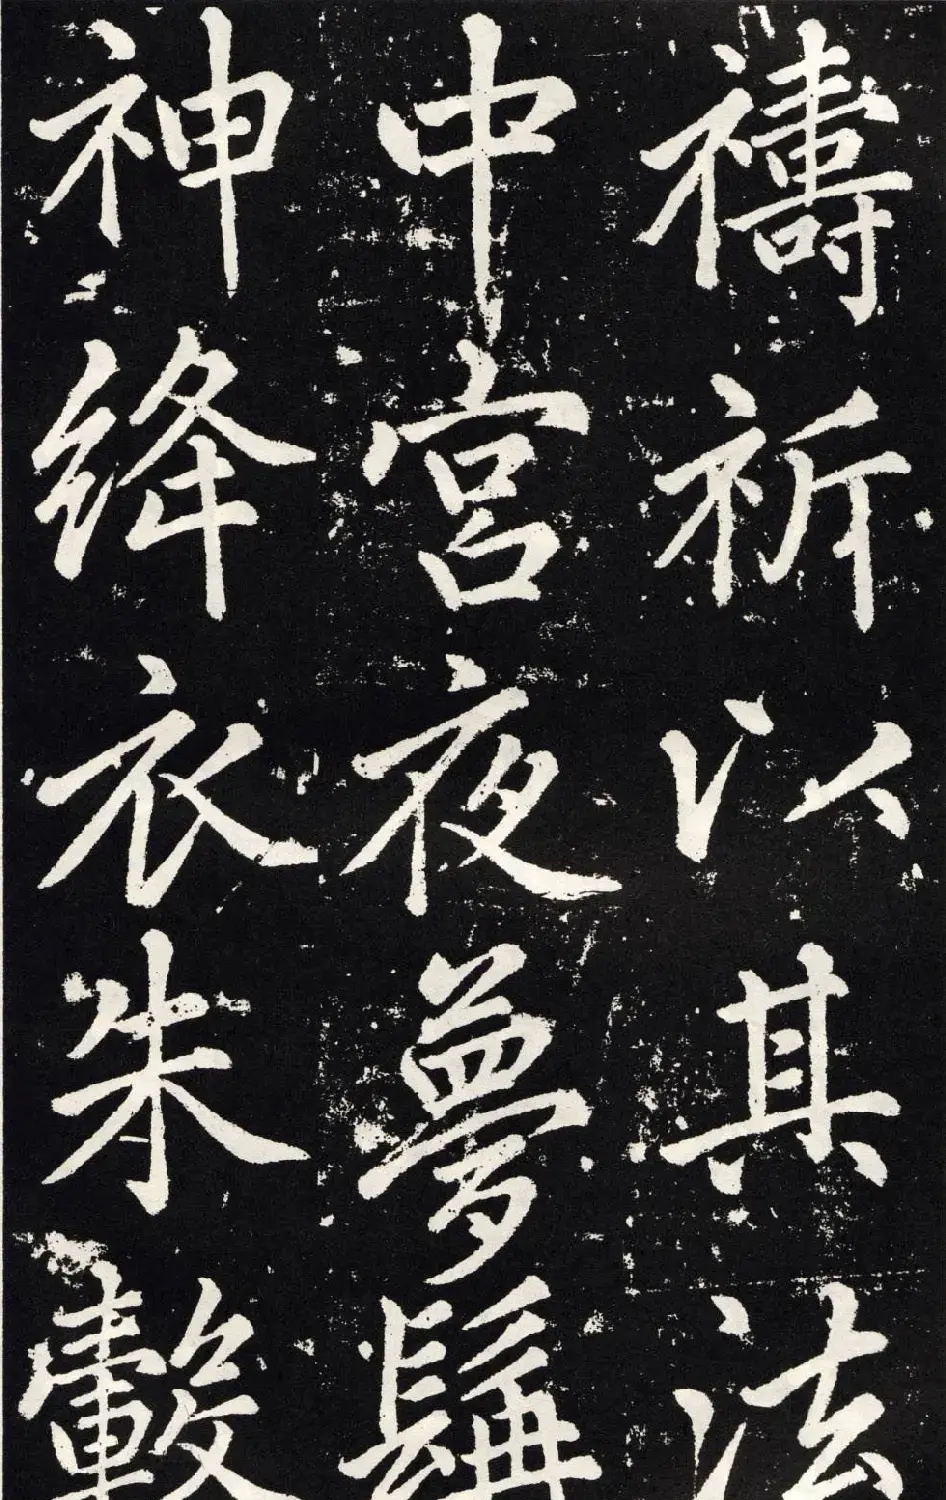 禱祈以其法
中宮夜夢髯
神絳衣朱轂